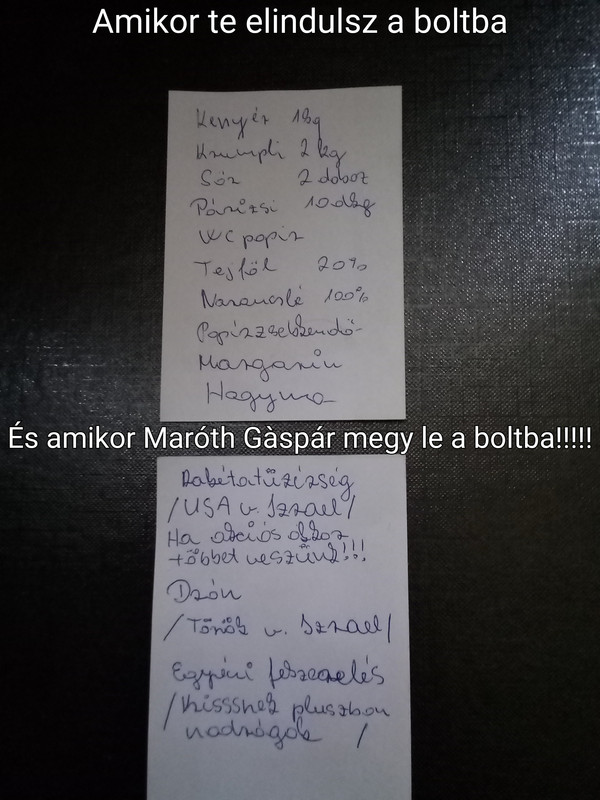 Amikor te elindulsz a boltba
Kenyér 1kg
Krumpli 2 kg
Sör 2 doboz
Párizsi 10 dkg
WC papír
Tejföl 20%
Narancslé 100%
Papírzsebkendő
Margarin
Hagyma
És amikor Maróth Gàspár megy le a boltba!!!!!
Rakétatüzérség
/USA v. Izrael/
Ha akciós akkor
többet veszünk!!!
Drón
/Török v. Izrael/
Egyéni felszerelés
/Kisssnek pluszban
nadrágok /